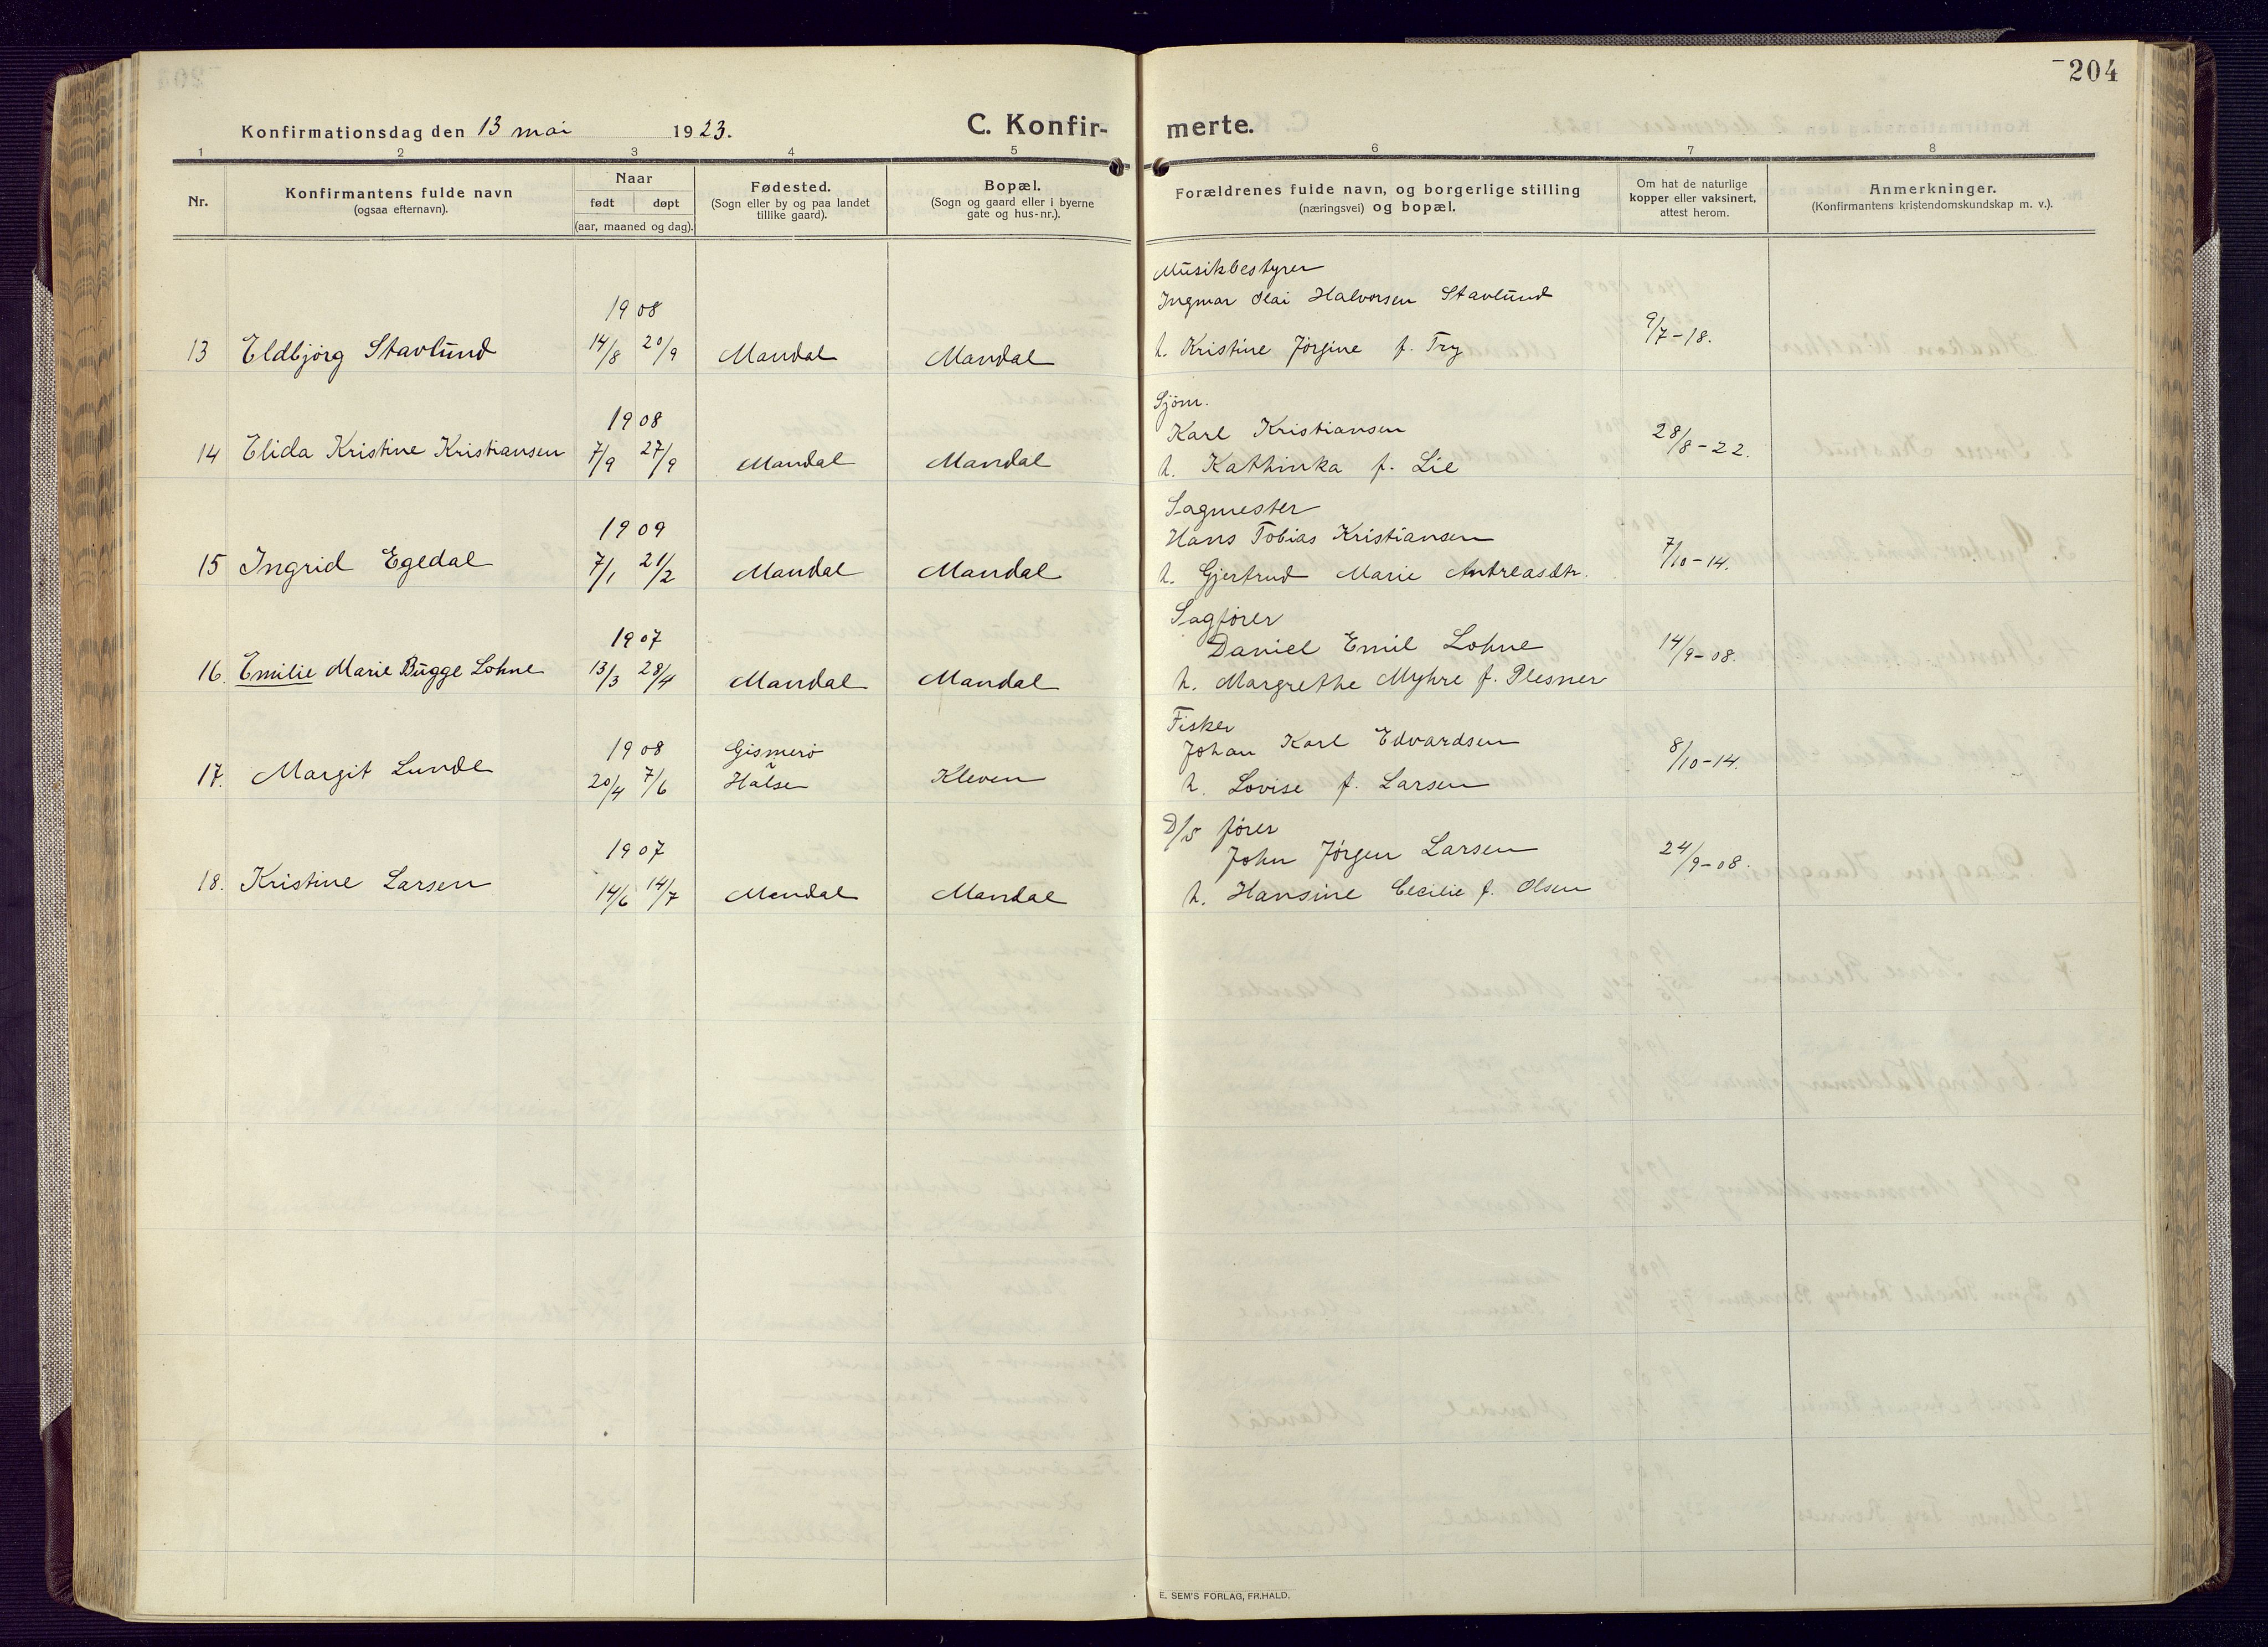 204
Konfirmationsdag den 13 mai 1923.
C. Konfirmerte.
1 2 3 4 5 6 7 8
Nr.
Konfirmantens fulde navn
(ogsaa efternavn).
Naar
født døpt
(aar, maaned og dag).
Fødested.
(Sogn eller by og paa landet
tillike gaard).
Bopæl.
(Sogn og gaard eller i byerne
gate og hus-nr.).
Forældrenes fulde navn, og borgerlige stilling
(næringsvei) og bopæl.
Om hat de naturlige
kopper eller vaksinert,
attest herom.
Anmerkninger.
(Konfirmantens kristendomskundskap m. v.).
Musikbestyrer
1908 Ingmar Olai Halvorsen Stavlund
13 Eldbjörg Stavlund 14/8 20/9 Mandal Mandal h. Kristine Jörgine f. Try 9/7-18.
Sjöm.
1908 Karl Kristiansen
14 Elida Kristine Kristiansen 7/9 27/9 Mandal Mandal h. Kathinka f. Lie 28/8-22.
Sagmester
1909 Hans Tobias Kristiansen
15 Ingrid Egedal 7/1 21/2 Mandal Mandal h. Gjertrud Marie Andreasdtr. 7/10-14.
Sagförer
1907 Daniel Emil Lohne
16. Emilie Marie Bugge Lohne 13/3 28/4 Mandal Mandal h. Margrethe Myhre f. Plesner 14/9-08.
Fisker
1908 Gismerö Johan Karl Edvardsen
17. Margit Lunde 20/4 7/6 Halse Kleven h. Lovise f. Larsen 8/10-14.
D/S förer
1907 John Jörgen Larsen
18. Kristine Larsen 14/6 14/7 Mandal Mandal h. Hansine Cecilie f. Olsen 24/9-08.
E. SEM'S FORLAG, FR.HALD.